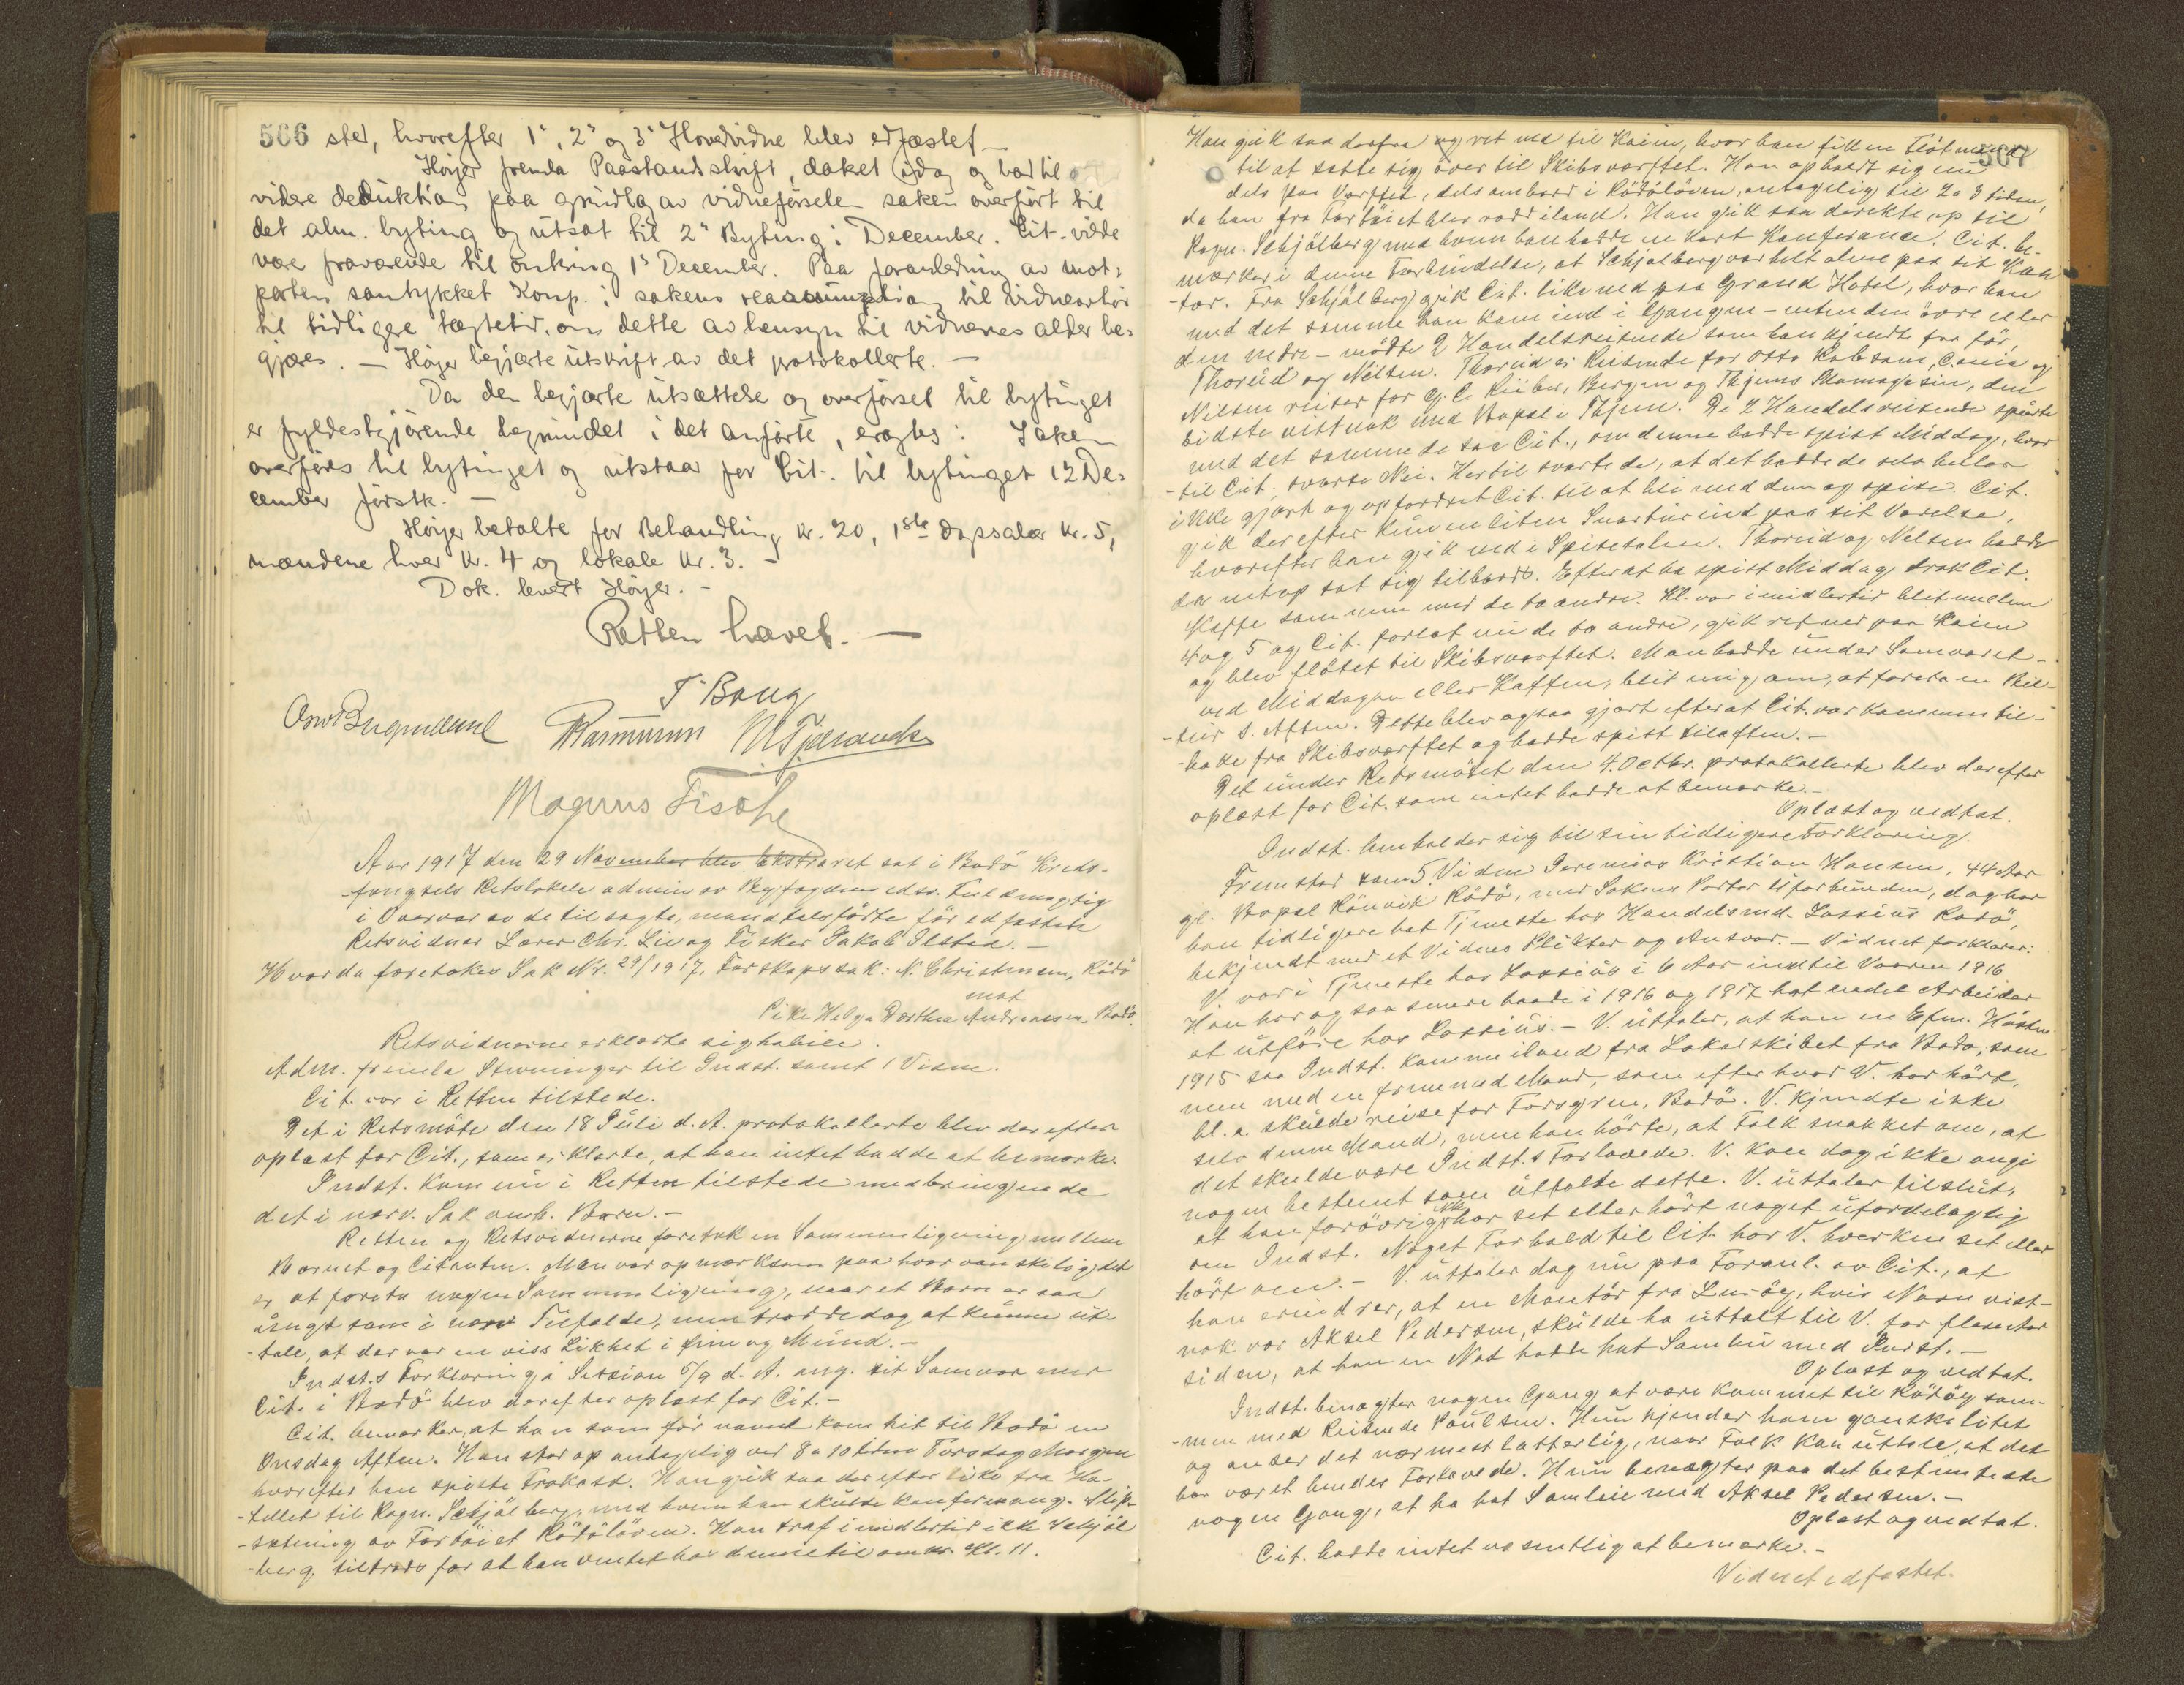 566 sted, hvorefter 1', 2' og 3' Hovedvidne blev edfæstet –
Høyer fremla Paastandsskrift, datert idag og bad til
videre deduktion paa grundlag av vidneførselen saken overført til
det alm. byting og utsat til 2' Byting i December. Cit. vilde
være fraværende til omkring 1' December. Paa foranledning av mot-
parten samtykket Komp. i sakens reassumption til vidneavhør
til tidligere tægtetid, om dette av hensyn til vidnernes alder be-
gjæres. – Høyer begjærte utskrift av det protokollerte. –
Da den begjærte utsættelse og overførsel til bytinget
er fyldestgjørende begrundet i det anførte, eragtes: Saken
overføres til bytinget og utstaar for Cit. til bytinget 12 De-
cember førstk. –
Høyer betalte for Behandling kr. 20, 1ste dagssalær kr. 5,
mændene hver kr. 4 og lokale kr. 3. –
Dok. levert Høyer. –
Retten hævet. –
T. Bang
Rasmussen
Magnus Fische
Aar 1917 den 29 November blev Ekstraret sat i Bodö Kreds-
-fængsels Retslokale admin av Byfogdens edsv. Fuldmægtig
i Overvær av de tilsagte, mandtalsförte för edfæstede
Retsvidner Lærer Chr. Lie og Fisker Jakob Ilstad. –
Hvorda foretokes Sak Nr. 29/1917, Farskapssak: N. Christensen, Rödö
mot
Pike Helga Dorthea Andreassen, Bodö.
Retsvidnerne erklærte sig habile.
Adm. fremla Stevninger til Indst. samt 1 Vidne.
Cit. var i Retten tilstede.
Det i Retsmöte den 18 Juli d. A. protokollerte blev derefter
oplæst for Cit., som erklærte, at han intet hadde at bemærke.
Indst. kom nu i Retten tilstede medbringende
det i nærv. Sak omh. Barn. –
Retten og Retsvidnerne foretok en Sammenligning mellem
Barnet og Citanten. Man var opmærksom paa hvor vanskelig det
er at foreta nogen Sammenligning, naar et Barn er saa
ungt som i nærv. Tilfælde, men trodde dog at kunne ut-
-tale, at der var en viss Likhet i Öine og Mund. –
Indst.s Forklaring i Session 6/9 d. A. ang. sit Samvær med
Cit. i Bodö blev derefter oplæst for Cit. –
Cit. bemærker, at han som för nævnt kom hit til Bodö en
Onsdag Aften. Han stod op antagelig ved 8 a 10 tiden Torsdag Morgen
hvorefter han spiste Frokost. Han gik saa derefter like fra Ho-
-tellet til Ragn. Schjölberg, med hvem han skulde konferere ang. Slip-
-sætning av Fartöiet Rödölöven. Han traf imidlertid ikke Schjöl
-berg tiltrods for at han ventet paa denne til omkr. Kl. 11.
567
Han gik saa derfra og ret ned til Kaien, hvor han fik en Flötmand
til at sætte sig over til Skibsværftet. Han opholdt sig nu
dels paa Værftet, dels ombord i Rödölöven, antagelig til 2 a 3 tiden,
da han fra Fartöiet blev rodd iland. Han gik saa direkte op til
Ragn. Schjölberg med hvem han hadde en kort Konferance. Cit. be-
mærker i denne Forbindelse, at Schjölberg var helt alene paa sit Kon
-tor. Fra Schjölberg gik Cit. like ned paa Grand Hotel, hvor han
med det samme han kom ind i Gangen – enten den övre eller
den nedre – mödte 2 Handelsreisende som han kjendte fra för,
Thorud og Nilsen. Thorud er Reisende for Otto Robsam, Cania og
Nilsen reiser for G. C. Rieber, Bergen og Thjems Skomagasin, den
sidste vistnok med Bopæl i Thjem. De 2 Handelsreisende spurte
med det samme de saa Cit., om denne hadde spist Middag, hvor
-til Cit. svarte Nei. Hertil svarte de, at det hadde de selv heller
ikke gjort og opfordret Cit. til at bli med dem og spise. Cit.
gik derefter kun en liten Snartur ind paa sit Værelse,
hvorefter han gik ned i Spisesalen. Thorud og Nilsen hadde
da netop sat sig tilbords. Efter at ha spist Middag drak Cit.
Kaffe sammen med de to andre. Kl. var imidlertid blit mellem
4 og 5 og Cit. forlot nu de to andre, gik ret ned paa Kaien
og blev flötet til Skibsværftet. Man hadde under Samværet –
ved Middagen eller Kaffen, blit enig om, at foreta en Bil-
-tur s. Aften. Dette blev ogsaa gjort efter at Cit. var kommen til-
-bake fra Skibsværftet og hadde spist tilaften. –
Det under Retsmötet den 4. Octbr. protokollerte blev derefter
oplæst for Cit. som intet hadde at bemærke. –
Oplæst og vedtat.
Indst. henholder sig til sin tidligere Forklaring.
Fremstod som 5. Vidne Jeremias Kristian Hansen, 44 Aar
gl. Bopæl Rönvik Rödö, med Sakens Parter uforbunden, dog har
han tidligere hat Tjeneste hos Handelsmd. Lossius Rödö,
bekjendt med et Vidnes Plikter og Ansvar. – Vidnet forklarer:
V. var i Tjeneste hos Lossius i 6 Aar indtil Vaaren 1916
Han har ogsaa senere baade i 1916 og 1917 hat endel Arbeider
at utföre hos Lossius. – V. uttaler, at han en Efm. Hösten
1915 saa Indst. komme iland fra Lokalskibet fra Bodö, sam
men med en fremmed Mand, som efter hvad V. har hört,
bl. a. skulde reise for Forsgren, Bodö. V. kjendte ikke
selv denne Mand, men han hörte, at Folk snakket om, at
det skulde være Indst.s Forlovede. V. kan dog ikke angi
nogen bestemt som uttalte dette. V. uttaler tilslut,
at han forövrig ikke har set eller hört noget ufordelagtig
om Indst. Noget Forhold til Cit. har V. hverken set eller
hört om. – V. uttaler dog nu paa Foranl. av Cit., at
han erindrer, at en Montör fra Luröy, hvis Navn vist-
nok var Aksel Pedersen, skulde ha uttalt til V. for flere Aar
siden, at han en Nat hadde hat Samleie med Indst. –
Oplæst og vedtat.
Indst. benægter nogen Gang at være kommet til Rödöy sam-
-men med Reisende Paulsen. Hun kjender ham ganske litet
og anser det nærmest latterlig, naar Folk kan uttale, at det
har været hendes Forlovede. Hun benægter paa det bestemteste
nogen Gang, at ha hat Samleie med Aksel Pedersen. –
Oplæst og vedtat.
Cit. hadde intet væsentlig at bemærke. –
Vidnet edfæstet.